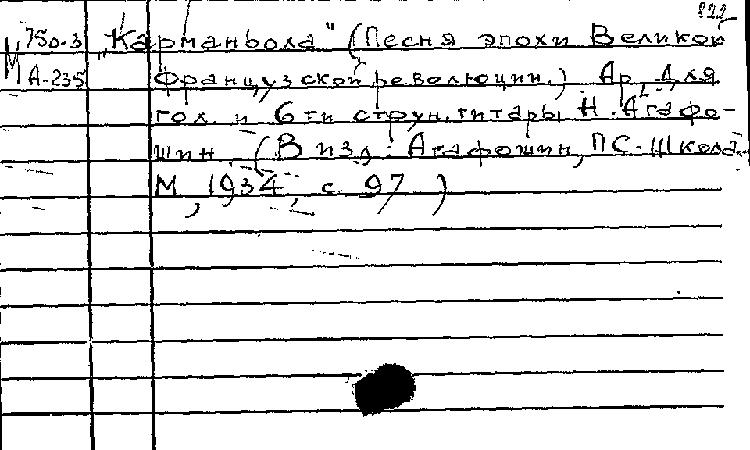 М 750-3 „Карманьола" (Песня эпохи Великой
А-235 Французской революции.) Ар. для
гол. и 6-ти струн. гитары Н. Агафо-
шин. (В изд.: Агафошин, П.С.-Школа.
М., 1934, с. 97)